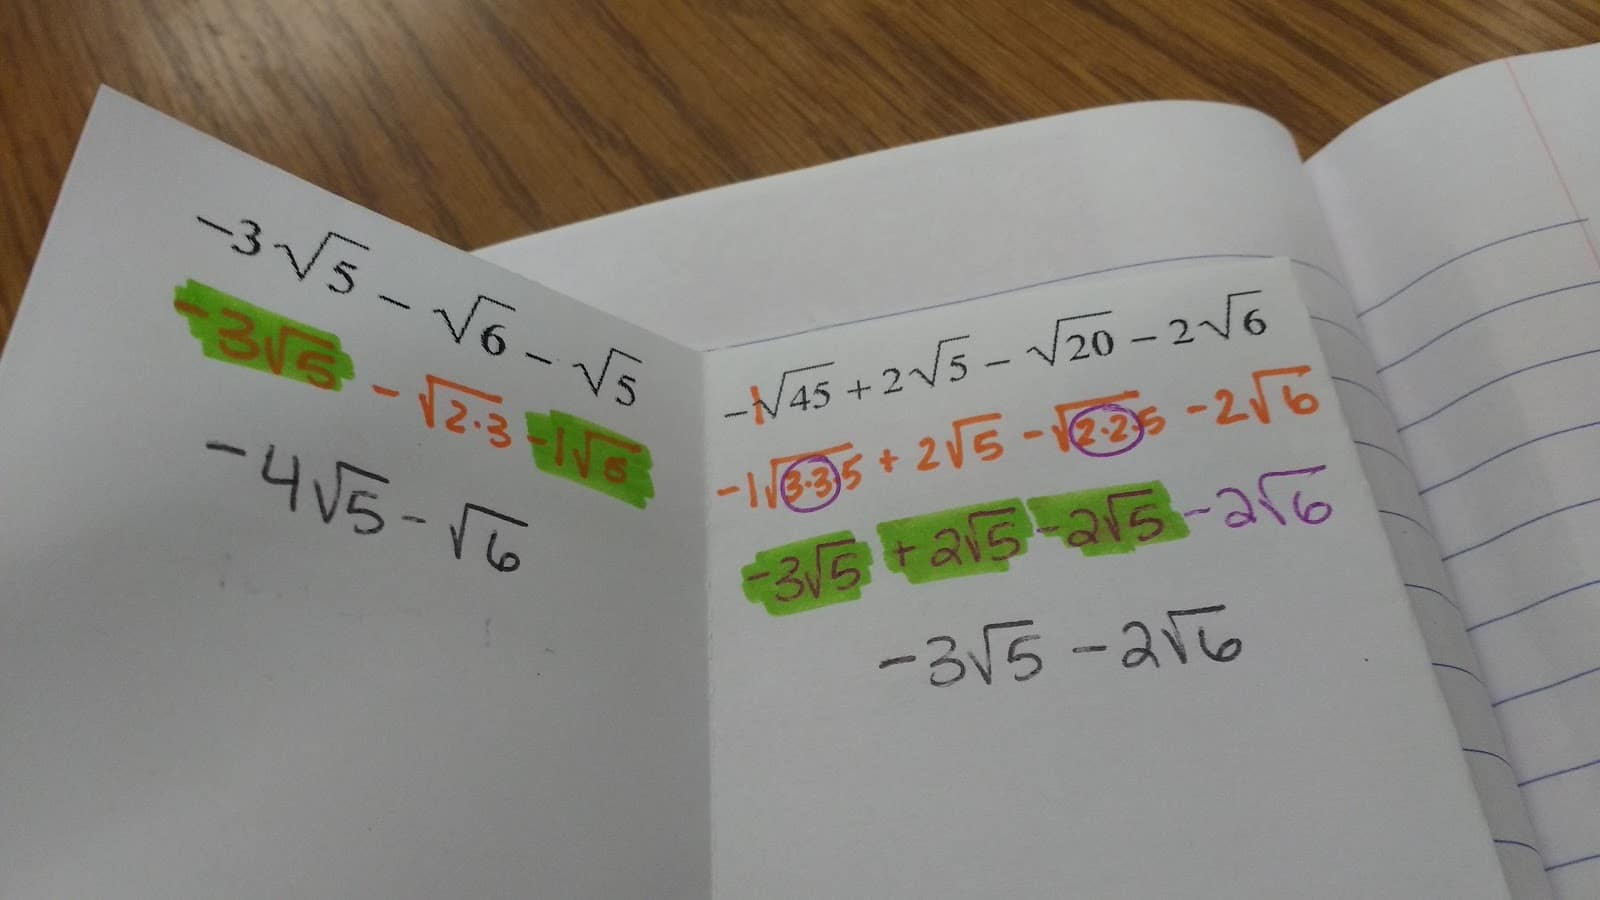 -3√5 - √6 - √5
-3√5 - √2·3 -1√5
-4√5 - √6
-1√45 + 2√5 - √20 - 2√6
-1√3·3·5 + 2√5 - √2·2·5 - 2√6
-3√5 + 2√5 - 2√5 - 2√6
-3√5 - 2√6